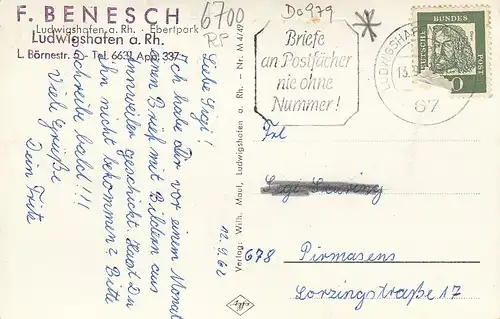 F. BENESCH
Ludwigshafen a. Rh. - Ebertpark
Ludwigshafen a. Rh.
L. Börnestr. 5 - Tel. 6631 App. 337
6700
RP
Do 979
Briefe
an Postfächer
nie ohne
Nummer!
LUDWIGSHAFEN
13.
67
DEUTSCHE
BUNDES
POST
Liebe Gigi!
Ich habe Dir vor einem Monat
einen Brief mit Bildern aus
Annweiler geschickt. Hast Du
ihn nicht bekommen? Bitte
schreibe bald!!!
Viele Grüße
Dein Fritz
12.9.62
Verlag: Wilh. Maul, Ludwigshafen a. Rh. - Nr. M 4/49
Frl
678 Pirmasens
Lorzingstraße 17